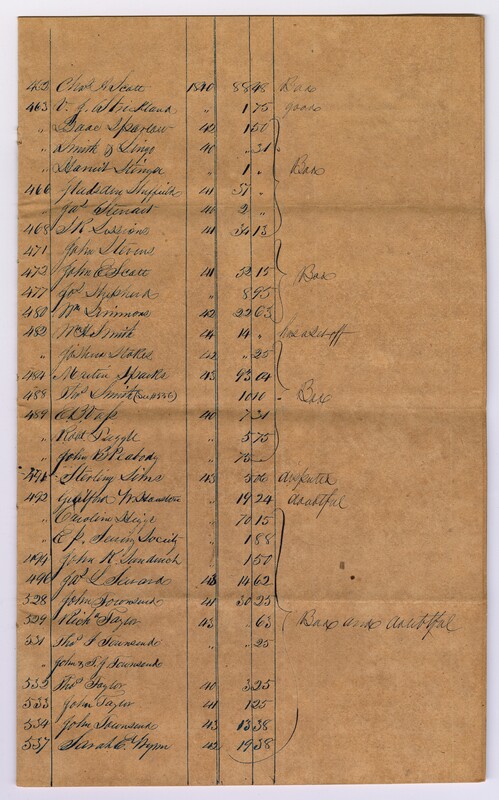 462 Chas A. Scott 1840 88 48 Bad
463 V. J. Strickland " 1 75 good
" Isaac Sparlow 42 1 50
" Smith & Lingo 40 " 31
" Stinger " 1 " Bad
466 Sheffield 41 37 "
" Jas Stewart 40 2 "
468 J. K. Sessions 41 34 13
471 John Stevens
472 John E Scott 41 32 15 Bad
477 Jos Shepherd " 8 95
480 Wm Simmons 42 22 63
482 Smith 44 14 "
" Joshua Stokes 42 " 25
484 Martin Sparks 43 93 04
488 Thos Smith 10 10 Bad
489 40 7 31
" Robt " 5 75
" John B Peabody " 75
491 Sterling Sims 43 5 06 disputed
492 " 19 24 doubtful
" Caroline " 70 15
" Sewing Society " 1 88
494 John K. " 1 50
496 Jas L Seward 43 14 62
528 John Townsend 41 30 25
529 Taylor 43 " 63 Bad and doubtful
531 Thos Townsend " " 25
" John & Townsend
532 Thos Taylor 40 3 25
533 John Taylor 41 1 25
534 John Townsend 43 13 38
537 Sarah E. Wynn 42 19 38